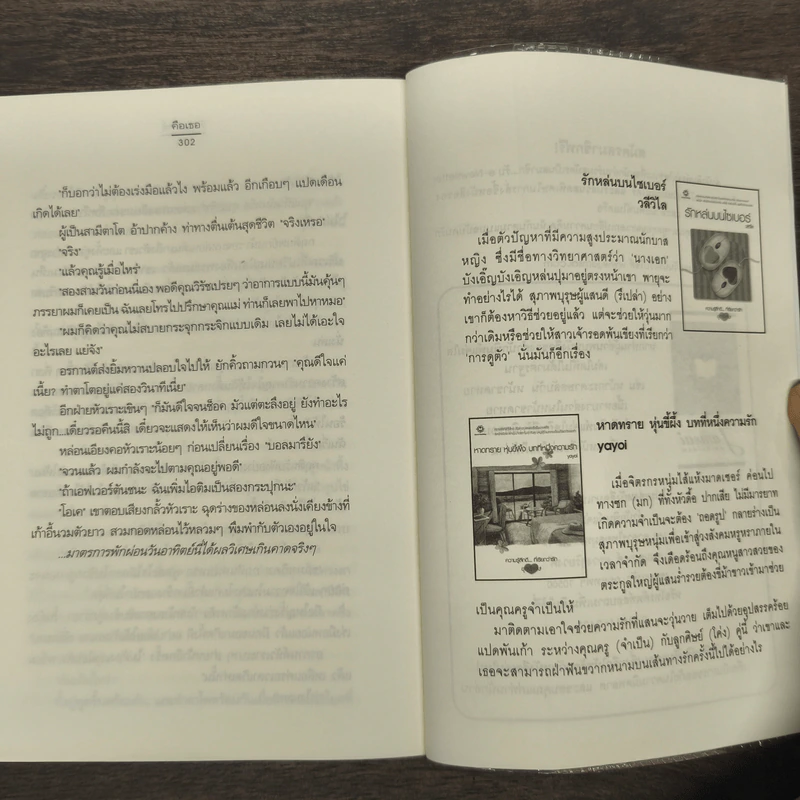 คือเธอ
302
"ก็บอกว่าไม่ต้องเร่งมือแล้วไง พร้อมแล้ว อีกเกือบๆ แปดเดือน
เกิดได้เลย"
ผู้เป็นสามีตาโต อ้าปากค้าง ท่าทางตื่นเต้นสุดชีวิต "จริงเหรอ"
"จริง"
"แล้วคุณรู้เมื่อไหร่"
"สองสามวันก่อนนี่เอง พอดีคุณวิรัชเปรยๆ ว่าอาการแบบนี้มันคุ้นๆ
ภรรยาผมก็เคยเป็น ฉันเลยโทรไปปรึกษาคุณแม่ ท่านก็เลยพาไปหาหมอ"
"ผมก็คิดว่าคุณไม่สบายกระจุกกระจิกแบบเดิม เลยไม่ได้เอะใจ
อะไรเลย แย่จัง"
อรกานต์ส่งยิ้มหวานปลอบใจไปให้ ยักคิ้วถามกวนๆ "คุณดีใจแค่
เนี้ย? ทำตาโตอยู่แค่สองวินาทีเนี่ย"
อีกฝ่ายหัวเราะเขินๆ "ก็มันดีใจจนช็อค มัวแต่ตะลึงอยู่ ยังทำอะไร
ไม่ถูก...เดี๋ยวรอคืนนี้สิ เดี๋ยวจะแสดงให้เห็นว่าผมดีใจขนาดไหน"
หล่อนเอียงคอหัวเราะน้อยๆ ก่อนเปลี่ยนเรื่อง "บอลมารึยัง"
"จวนแล้ว ผมกำลังจะไปตามคุณอยู่พอดี"
"ถ้าเอฟเวอร์ตันชนะ ฉันเพิ่มไอติมเป็นสองกระปุกนะ"
"โอเค" เขาตอบเสียงกลั้วหัวเราะ ฉุดร่างของหล่อนลงนั่งเคียงข้างที่
เก้าอี้นวมตัวยาว สวมกอดหล่อนไว้หลวมๆ พึมพำกับตัวเองอยู่ในใจ
...มาตรการพักผ่อนวันอาทิตย์นี่ได้ผลวิเศษเกินคาดจริงๆ
รักหล่นบนไซเบอร์
วลีวิไล
เมื่อตัวปัญหาที่มีความสูงประมาณนักบาส
หญิง ซึ่งมีชื่อทางวิทยาศาสตร์ว่า 'นางเอก'
บังเอิ๊ญบังเอิญหล่นปุมาอยู่ตรงหน้าเขา พายุจะ
ทำอย่างไรได้ สุภาพบุรุษผู้แสนดี (รึเปล่า) อย่าง
เขาก็ต้องหาวิธีช่วยอยู่แล้ว แต่จะช่วยให้วุ่นมาก
กว่าเดิมหรือช่วยให้สาวเจ้ารอดพ้นเขียงที่เรียกว่า
'การดูตัว' นั่นมันก็อีกเรื่อง
รักหล่นบนไซเบอร์
หาดทราย หุ่นขี้ผึ้ง บทที่หนึ่งความรัก
yayoi
เมื่อจิตรกรหนุ่มไส้แห้งมาดเซอร์ ค่อนไป
ทางซก (มก) ที่ทั้งหัวดื้อ ปากเสีย ไม่มีมารยาท
เกิดความจำเป็นจะต้อง 'ถอดรูป' กลายร่างเป็น
สุภาพบุรุษหนุ่มเพื่อเข้าสู่วงสังคมหรูหราภายใน
เวลาจำกัด จึงเดือดร้อนถึงคุณหนูสาวสวยของ
ตระกูลใหญ่ผู้แสนร่ำรวยต้องขี่ม้าขาวเข้ามาช่วย
เป็นคุณครูจำเป็นให้
มาติดตามเอาใจช่วยความรักที่แสนจะวุ่นวาย เต็มไปด้วยอุปสรรคร้อย
แปดพันเก้า ระหว่างคุณครู (จำเป็น) กับลูกศิษย์ (โค่ง) คู่นี้ ว่าเขาและ
เธอจะสามารถฝ่าฟันขวากหนามบนเส้นทางรักครั้งนี้ไปได้อย่างไร
หาดทราย หุ่นขี้ผึ้ง บทที่หนึ่งความรัก
yayoi